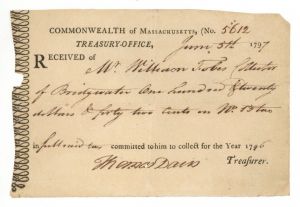 COMMONWEALTH OF MASSACHUSETTS, (No. 5612
TREASURY-OFFICE, June 5th 1797
RECEIVED OF Mr William Fobes Collector
of Bridgwater One Hundred & twenty
dollars & forty two cents on No.
in full committed to him to collect for the Year 1796
Thomas Davis Treasurer.